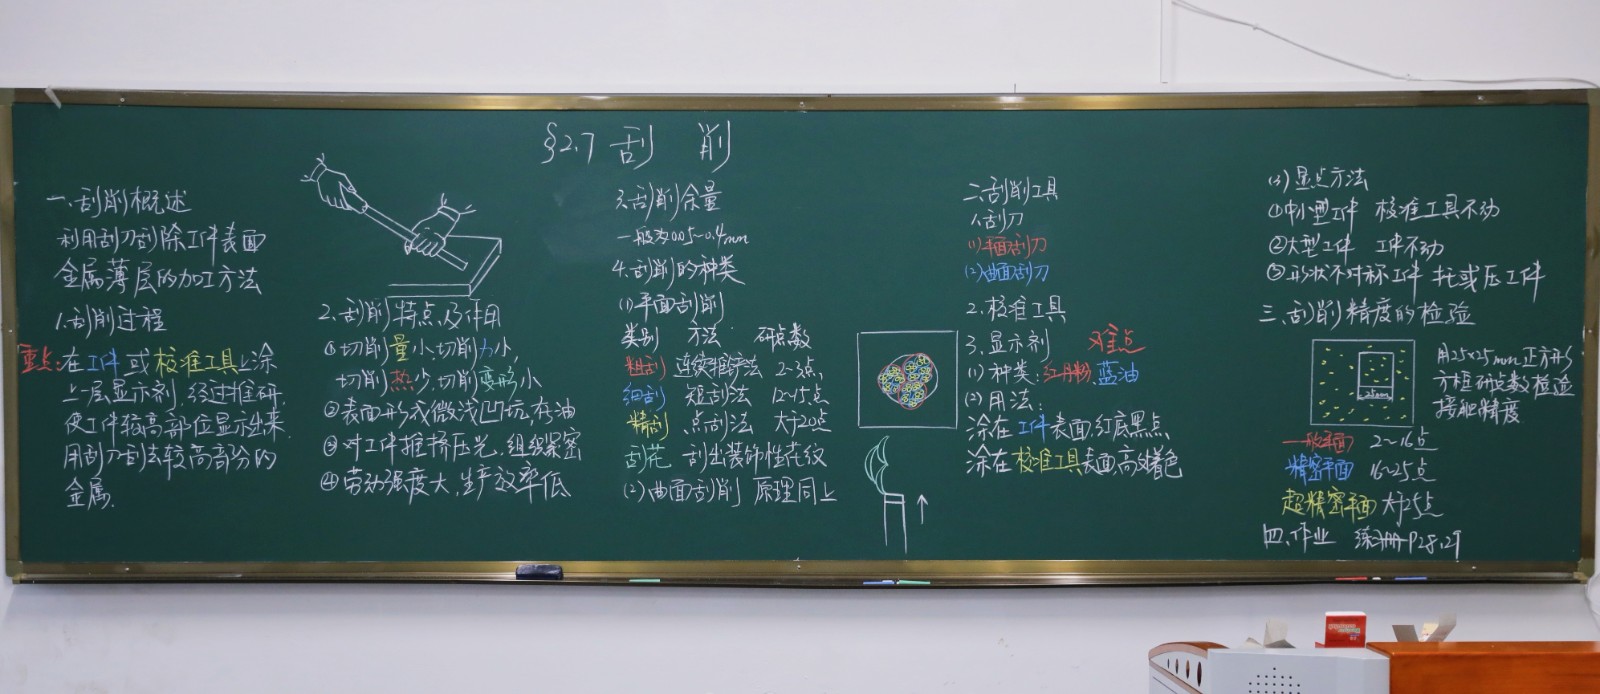 §2.7 刮削
一.刮削概述
利用刮刀刮除工件表面
金属薄层的加工方法
1.刮削过程
重点:在工件或校准工具上涂
上一层显示剂,经过推研,
使工件较高部位显示出来,
用刮刀刮去较高部分的
金属.
2.刮削特点及作用
①切削量小,切削力小,
切削热少,切削变形小
②表面形成微浅凹坑,存油
③对工件推挤压光,组织紧密
④劳动强度大,生产效率低
3.刮削余量
一般为0.05~0.4mm
4.刮削的种类
(1)平面刮削
类别 方法 研点数
粗刮 连续推铲法 2~3点
细刮 短刮法 12~15点
精刮 点刮法 大于20点
刮花 刮出装饰性花纹
(2)曲面刮削 原理同上
二.刮削工具
1.刮刀
(1)平面刮刀
(2)曲面刮刀
2.校准工具
3.显示剂 难点
(1)种类:红丹粉,蓝油
(2)用法:
涂在工件表面,红底黑点
涂在校准工具表面,高处着色
(3)显点方法
①中小型工件 校准工具不动
②大型工件 工件不动
③形状不对称工件 托或压工件
三.刮削精度的检验
用25×25mm正方形
方框研点数检验
接触精度
25mm
一般平面 2~16点
精密平面 16~25点
超精密平面 大于25点
四.作业 练习册P28,29